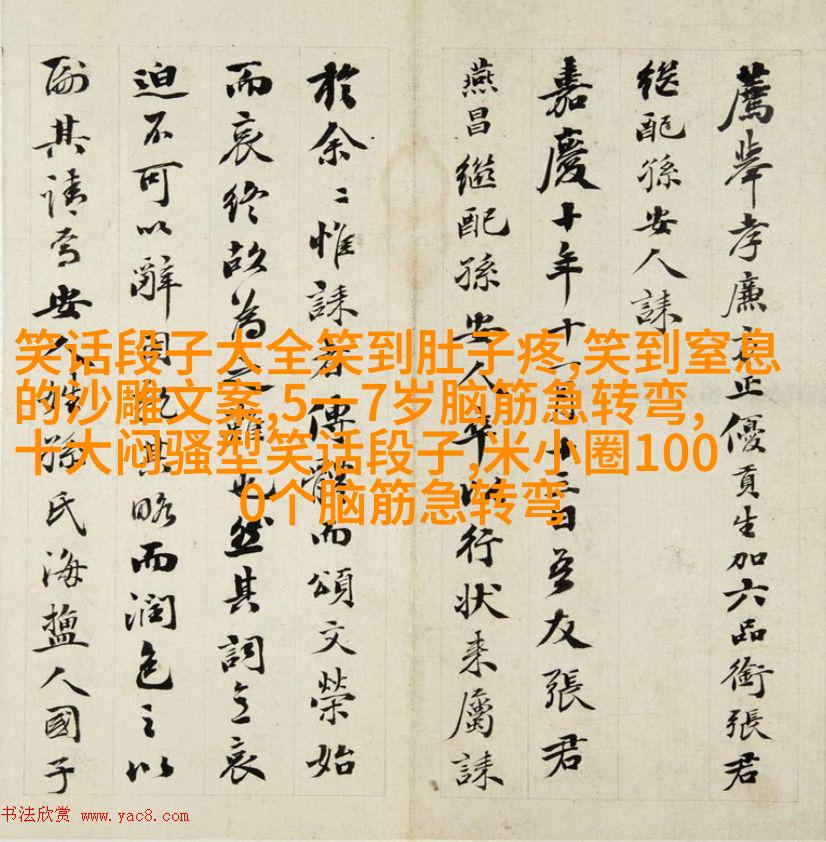 薦舉孝廉方正優貢生加六品銜張君
继配孫安人誄
嘉慶十年十日吾友張君
燕昌繼配孫安人卒以行状来屬誄
於余〻惟誄者傳體而頌文榮始
而哀終故為之難也然其詞主哀
迫不可以辭因其略而潤色之以
副其請焉安人姓孫氏海鹽人國子
笑话段子大全笑到肚子疼,笑到窒息
的沙雕文案,5一7岁脑筋急转弯,
十大闷骚型笑话段子,米小圈100
0个脑筋急转弯
书法欣赏 www.yac8.com